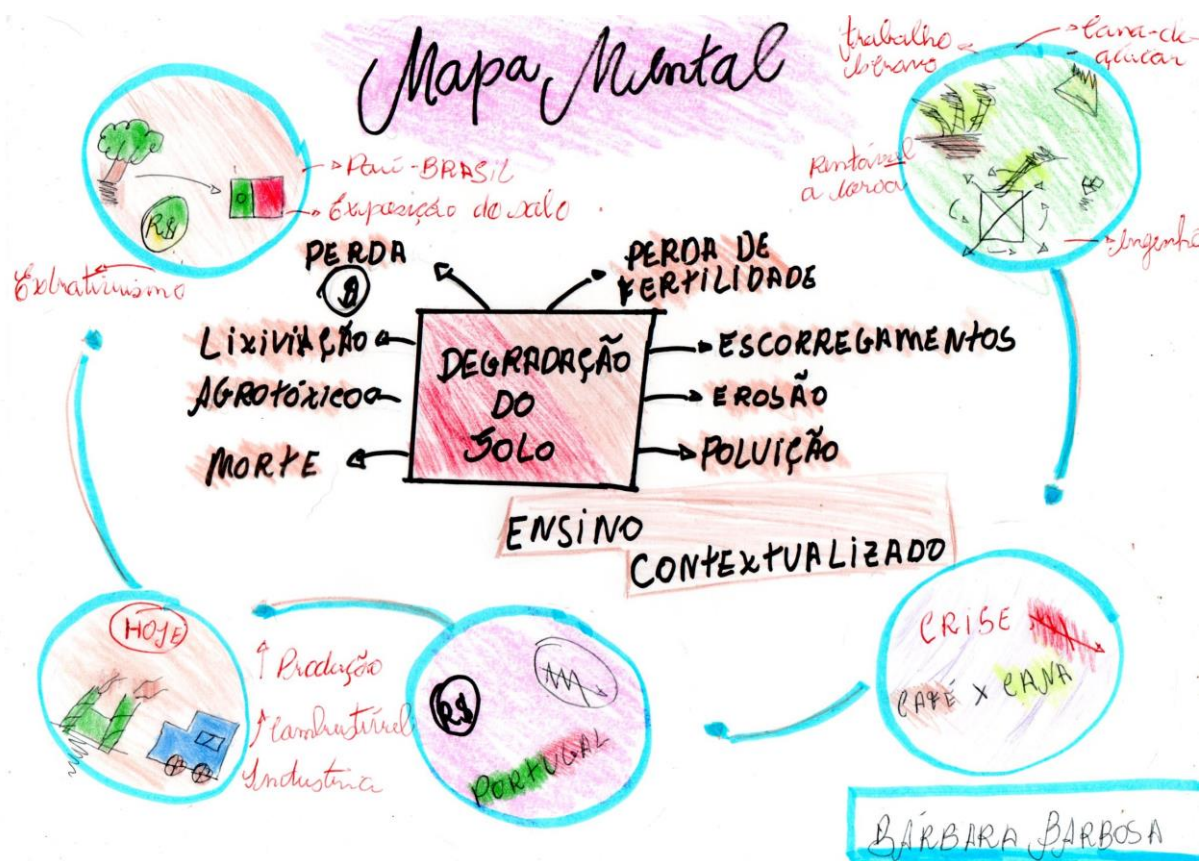 Mapa Mental
trabalho
escravo
Cana-de-
açúcar
Rentável
a coroa
Engenho
Pau-BRASIL
Exposição do solo
R$
Extrativismo
PERDA
$
PERDA DE
FERTILIDADE
LixiViAÇÃO
AGROtÓXiCO
MORtE
DEGRADAÇÃO
DO
SOLO
ESCORREGAMENTOS
EROSÃO
POLUiÇÃO
ENSiNO
CONtExtUALiZADO
HOJE
Produção
Combustível
Industria
R$
PORTUGAL
CRISE
CAFÉ X CANA
BÁRBARA BARBOSA